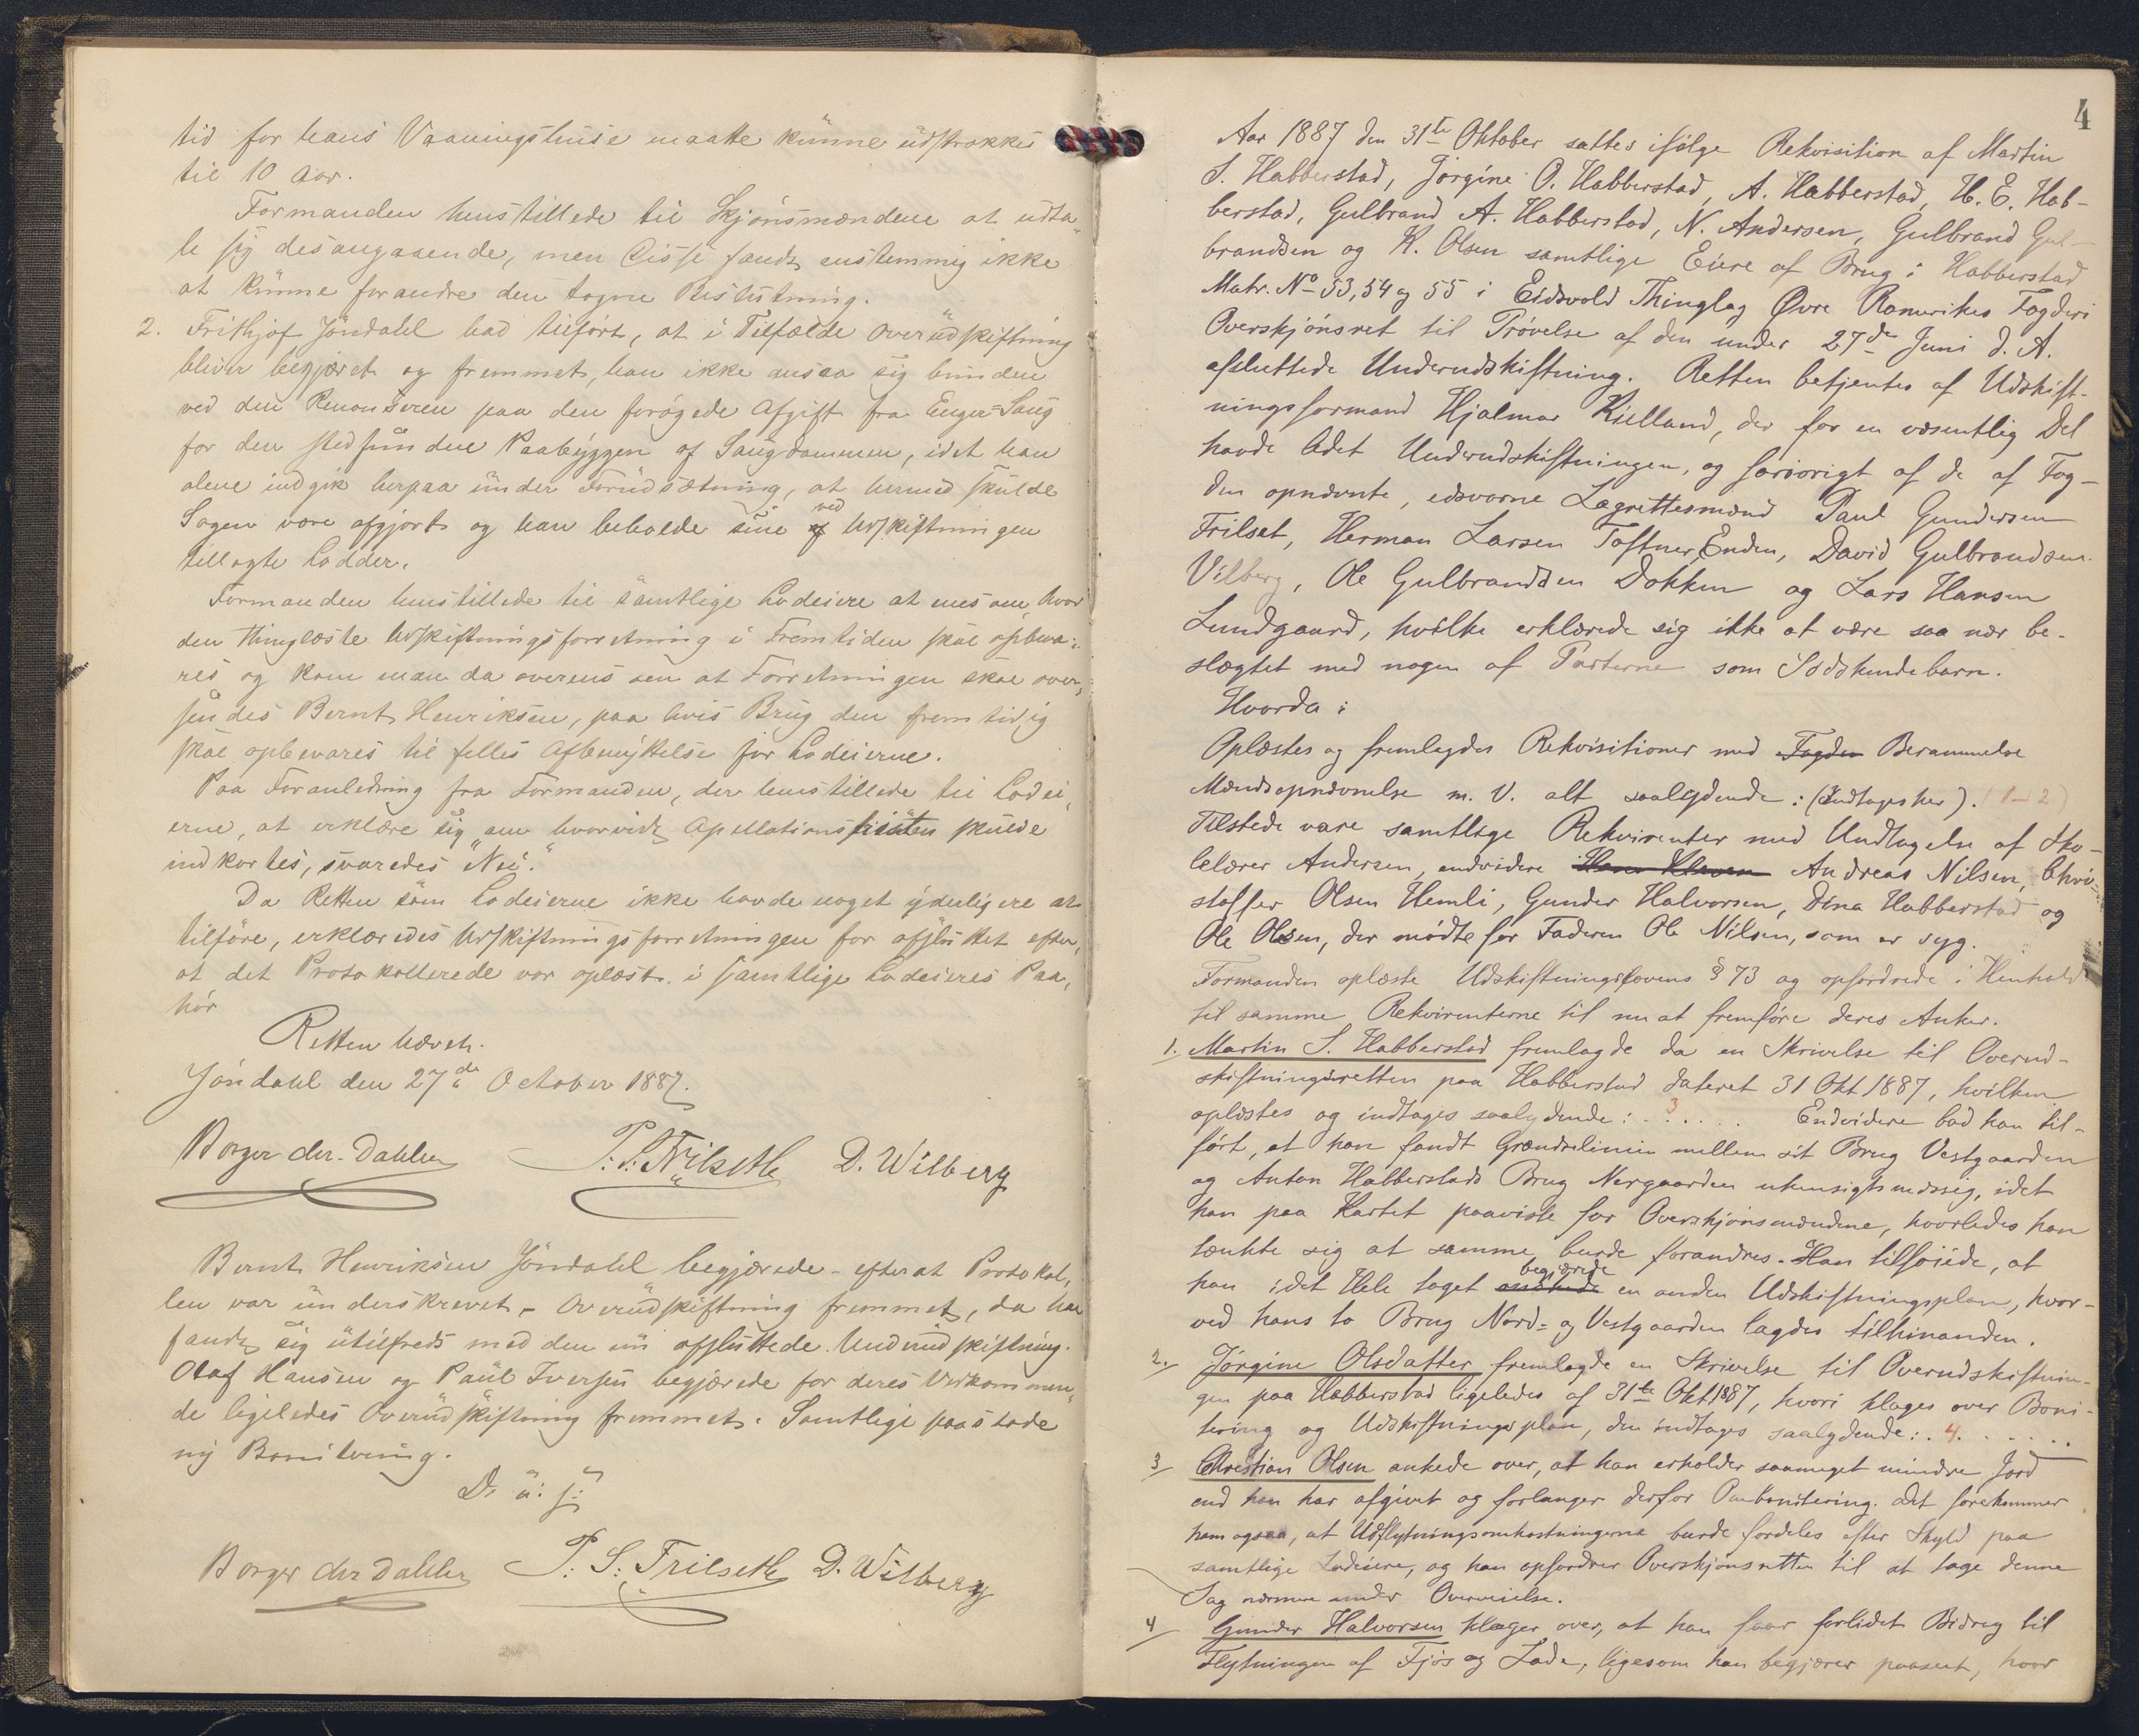 tid for hans Vaaningshuse maatte kunne udstrækkes
til 10 Aar.
Formanden henstillede til Skjønsmændene at udta„
le sig desangaaende, men Disse fandt enstemmig ikke
at kunne forandre den tagne Beslutning.
2. Frithjof Jöndahl bad tilført, at i Tilfælde Overudskiftning
bliver begjæret og fremmet, han ikke ansaa sig bunden
ved den Renonseren paa den forøgede Afgift fra Enger-Saug
for den stedfundne Paabyggen af Saugdammen, idet han
alene indgik herpaa under Forudsætning, at hermed skulde
Sagen være afgjort og han beholde sine af ved Udskiftningen
tillagte Lodder.
Formanden henstillede til samtlige Lodeiere at enes om, hvor
den thinglæste Udskiftningsforretning i Fremtiden skal opbeva„
res og kom man da overens om at Forretningen skal over„
sendes Bernt Henriksen, paa hvis Brug den fremtidig
skal opbevares til felles Afbenyttelse for Lodeierne.
Paa Foranledning fra Formanden, der henstillede til Lodei„
erne, at erklære sig om hvorvidt Apellationsfristen skulde
indkortes, svaredes "Nei."
Da Retten som Lodeierne ikke havde noget yderligere at
tilföre, erklæredes Udskiftningsforretningen for afsluttet efter„
at det Protokollerede var oplæst i samtlige Lodeieres Paa„
hør
Retten hævet.
Jöndahl den 27de October 1887.
Borger chr. Dahlen P. S. Frilseth D. Wilberg
Bernt Henriksen Jöndahl begjærede – efterat Protokol„
len var underskrevet – Overudskiftning fremmet, da han
fandt sig utilfreds med den nu afsluttede Underudskiftning.
Olaf Hansen og Paul Iversen begjærede for deres Vedkommen„
de ligeledes Overudskiftning fremmet. Samtlige paastode
ny Bonitering.
D. u. s.
Borger chr Dahlen P. S. Frilseth D. Wilberg
4
Aar 1887 den 31te Oktober sattes ifølge Rekvisition af Martin
S. Habberstad, Jørgine O. Habberstad, A. Habberstad, H. E. Hab-
berstad, Gulbrand A. Habberstad, N. Andersen, Gulbrand Gul-
brandsen og K. Olsen samtlige Eiere af Brug i Habberstad
Matr. No 53, 54 og 55 i Eidsvold Thinglag Øvre Romerikes Fogderi
Overskjønsret til Prøvelse af den under 27de Juni d. A.
afsluttede Underudskiftning. Retten betjentes af Udskift-
ningsformand Hjalmar Kielland, der for en væsentlig Del
havde ledet Underudskiftningen, og forøvrigt af de af Fog-
den opnævnte, edsvorne Lagrettesmænd Paul Gundersen
Frilset, Herman Larsen Toftner, Enden, David Gulbrandsen
Vilberg, Ole Gulbrandsen Dokken og Lars Hansen
Lundgaard, hvilke erklærede sig ikke at være saa nær be-
slægtet med nogen af Parterne som Sødskendebarn.
Hvorda:
Oplæstes og fremlagdes Rekvisitioner med Fogden Berammelse
Mændsopnævnelse m. V. alt saalydende: (Indtages her). (1-2)
Tilstede vare samtlige Rekvirenter med Undtagelse af Sko-
lelærer Andersen, endvidere Andreas Nilsen, Chri-
stoffer Olsen Hemli, Gunder Halvorsen, Dina Habberstad og
Ole Olsen, der mødte for Faderen Ole Nilsen, som er syg.
Formanden oplæste Udskiftningslovens § 73 og opfordrede i Henhold
til samme Rekvirenterne til nu at fremføre deres Anker.
1. Martin S. Habberstad fremlagde da en Skrivelse til Overud-
skiftningsretten paa Habberstad dateret 31 Okt 1887, hvilken
oplæstes og indtages saalydende: . 3 . . . . . Endvidere bad han til-
ført, at han fandt Grændselinien mellem sit Brug Vestgaarden
og Anton Habberstads Brug Nergaarden uhensigtsmæssig, idet
han paa Kartet paaviste for Overskjønsmændene, hvorledes han
tænkte sig at samme burde forandres. Han tilføiede, at
han i det Hele taget begjærede en anden Udskiftningsplan, hvor-
ved hans to Brug Nord- og Vestgaarden lagdes tilhinanden.
2. Jørgine Olsdatter fremlagde en Skrivelse til Overudskiftnin-
gen paa Habberstad ligeledes af 31te Okt 1887, hvori klages over Boni-
tering og Udskiftningsplan, den indtages saalydende: . 4 . . . . . .
3 Christian Olsen ankede over, at han erholder saameget mindre Jord
end han har afgivet og forlanger derfor Ombonitering. Det forekommer
ham ogsaa, at Udflytningsomkostningerne burde fordeles efter Skyld paa
samtlige Lodeiere, og han opfordrer Overskjønsretten til at tage denne
Sag nærmere under Overveielse.
4 Gunder Halvorsen klager over, at han faar forlidet Bidrag til
Flytningen af Fjøs og Lade, ligesom han begjærer paaseet, hvor